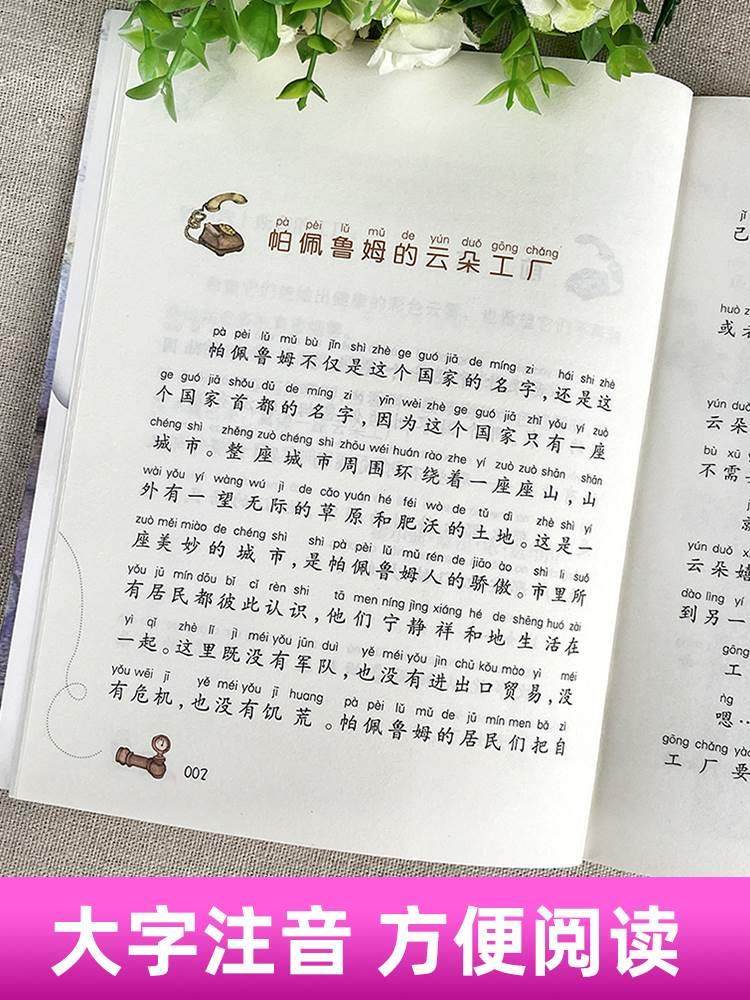 pà pèi lǔ mǔ de yún duǒ gōng chǎng
帕佩鲁姆的云朵工厂
pà pèi lǔ mǔ bù jǐn shì zhè ge guó jiā de míng zi hái shì zhè
帕佩鲁姆不仅是这个国家的名字，还是这
ge guó jiā shǒu dū de míng zi yīn wèi zhè ge guó jiā zhǐ yǒu yí zuò
个国家首都的名字，因为这个国家只有一座
chéng shì zhěng zuò chéng shì zhōu wéi huán rào zhe yí zuò zuò shān shān
城市。整座城市周围环绕着一座座山，山
wài yǒu yí wàng wú jì de cǎo yuán hé féi wò de tǔ dì zhè shì yí
外有一望无际的草原和肥沃的土地。这是一
zuò měi miào de chéng shì shì pà pèi lǔ mǔ rén de jiāo ào shì lǐ suǒ
座美妙的城市，是帕佩鲁姆人的骄傲。市里所
yǒu jū mín dōu bǐ cǐ rèn shi tā men níng jìng xiáng hé de shēng huó zài
有居民都彼此认识，他们宁静祥和地生活在
yì qǐ zhè lǐ jì méi yǒu jūn duì yě méi yǒu jìn chū kǒu mào yì méi
一起。这里既没有军队，也没有进出口贸易，没
yǒu wēi jī yě méi yǒu jī huang pà pèi lǔ mǔ de jū mín men bǎ zì
有危机，也没有饥荒。帕佩鲁姆的居民们把自
002
jǐ
己
huò zhě
或者
yún duǒ
云朵
bù xū
不需
就
yún duǒ
云朵
dào lìng yí
到另一
gōng
工
ńg
嗯…
gōng chǎng yào
工厂要
大字注音 方便阅读